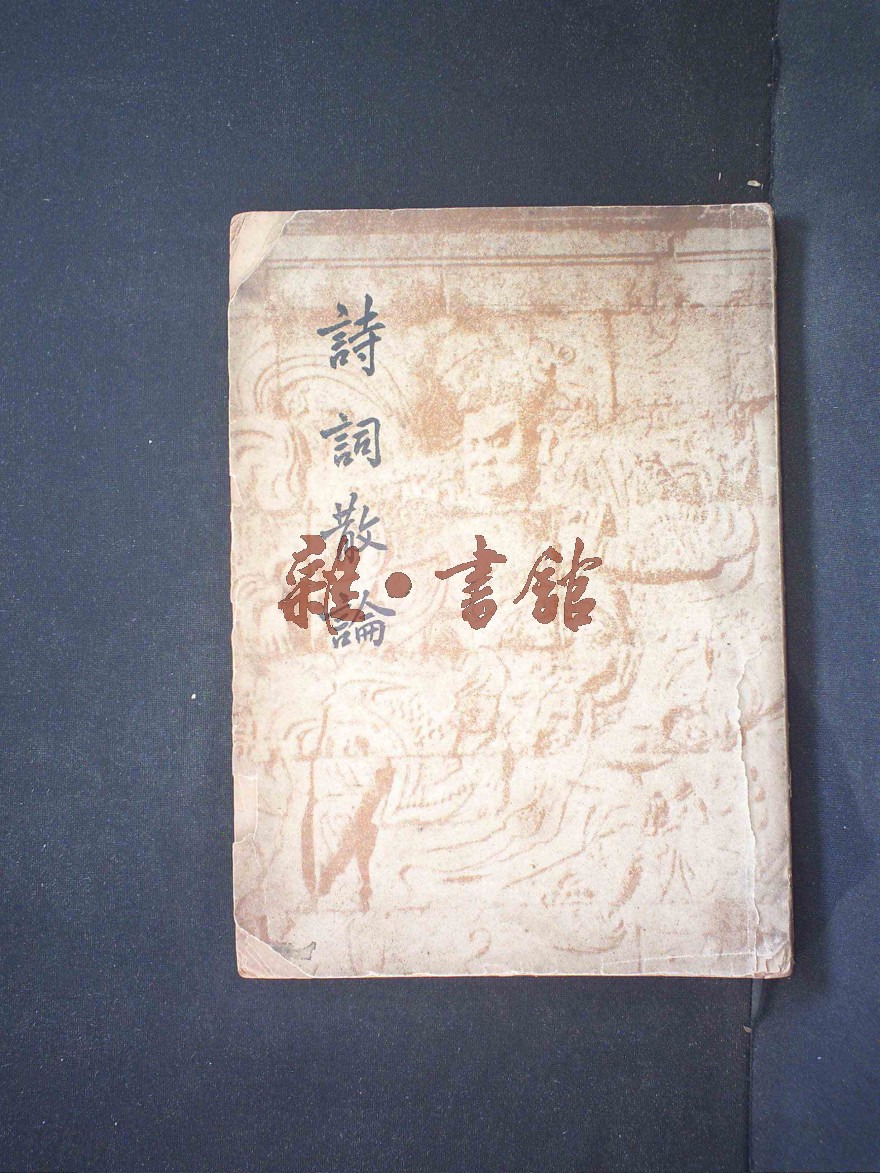 詩詞散論
雜·書館